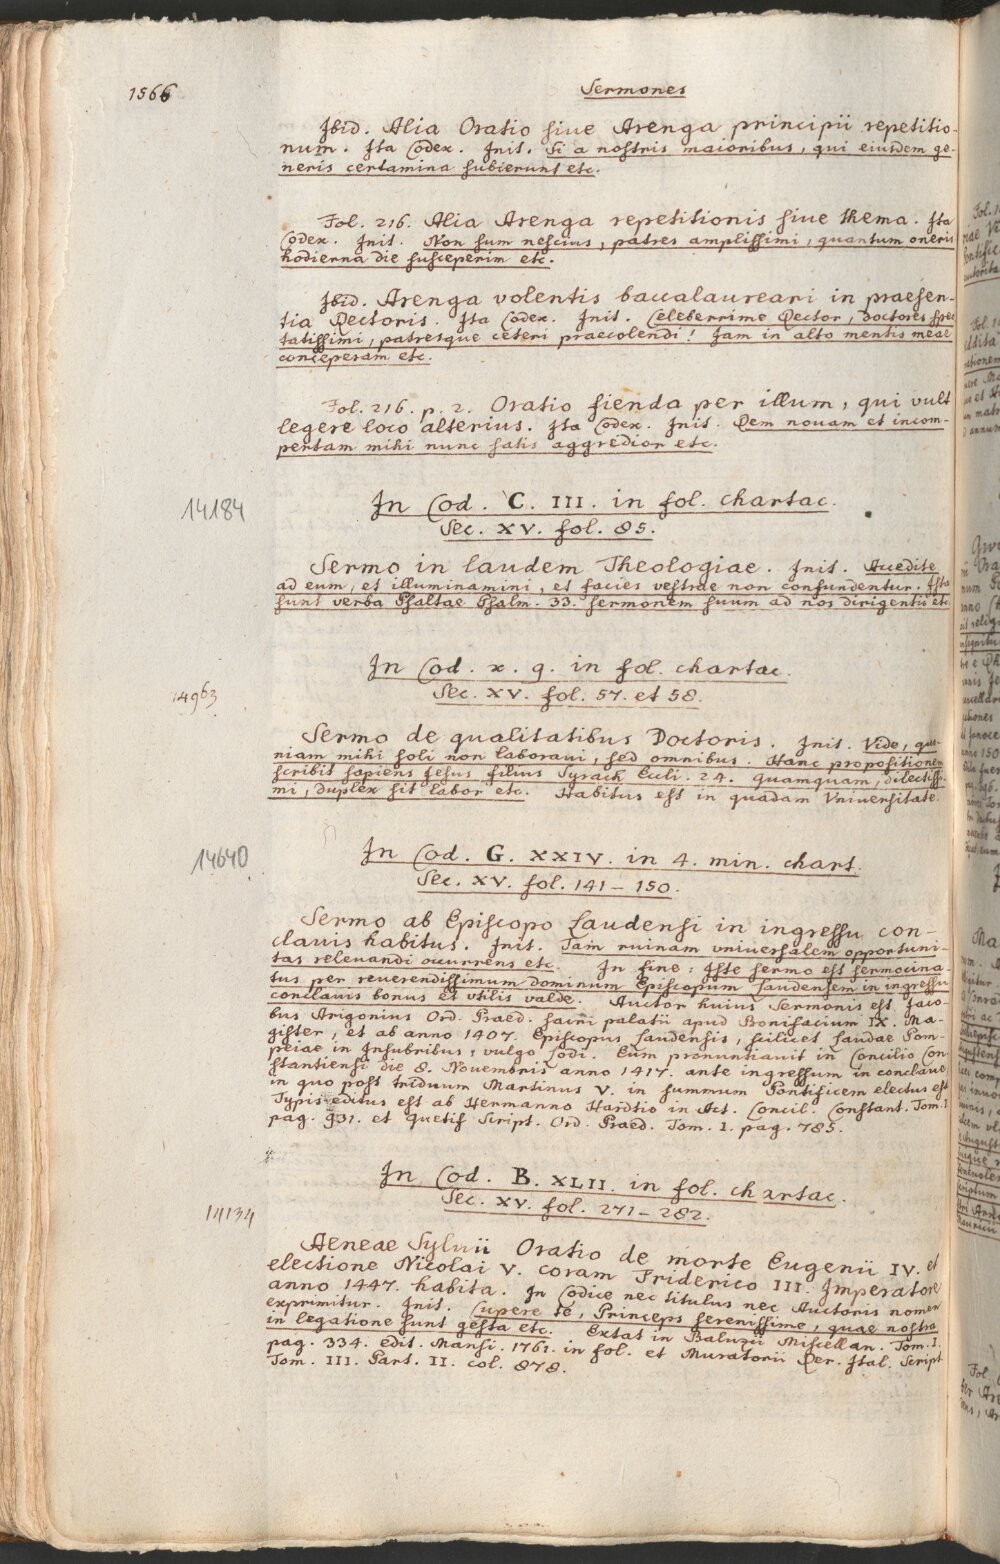 1566
Sermones
Ibid. Alia Oratio siue Arenga principii repetitio-
num. Ita Codex. Init. Si a nostris maioribus, qui eiusdem ge-
neris certamina subierunt etc.
Fol. 216. Alia Arenga repetitionis siue thema. Ita
Codex. Init. Non sum nescius, patres amplissimi, quantum oneris
hodierna die susceperim etc.
Ibid. Arenga volentis baccalaureari in praesen-
tia Rectoris. Ita Codex. Init. Celeberrime Rector, Doctores spec
tatissimi, patresque ceteri praecolendi! Iam in alto mentis meae
conceperam etc.
Fol. 216. p. 2. Oratio fienda per illum, qui vult
legere loco alterius. Ita Codex. Init. Rem nouam et incom-
pertam mihi nunc satis aggredior etc.
14184
In Cod. C. III. in fol. chartac.
Sec. XV. fol. 85.
Sermo in laudem Theologiae. Init. Accedite
ad eum, et illuminamini, et facies vestrae non confundentur. Ista
sunt verba Psaltae Psalm. 33. sermonem suum ad nos dirigentis etc
In Cod. x. 9. in fol. chartac.
14963
Sec. XV. fol. 57. et 58.
Sermo de qualitatibus Doctoris. Init. Vide, quo-
niam mihi soli non laboraui, sed omnibus. Hanc propositionem
scribit sapiens Jesus filius Syrach Eccli. 24. quamquam, dilectissi-
mi, duplex sit labor etc. Habitus est in quadam Vniuersitate.
14640
In Cod. G. XXIV. in 4. min. chart.
Sec. XV. fol. 141 – 150.
Sermo ab Episcopo Laudensi in ingressu con-
clauis habitus. Init. Tam ruinam vniuersalem opportuni-
tas releuandi occurrens etc. In fine: Iste sermo est sermocina-
tus per reuerendissimum dominum Episcopum Laudensem in ingressu
conclauis bonus et vtilis valde. Auctor huius Sermonis est Jaco-
bus Arigonius Ord. Praed. sacri palatii apud Bonifacium IX. Ma-
gister, et ab anno 1407. Episcopus Laudensis, scilicet Laudae Pom-
peiae in Insubribus, vulgo Lodi. Eum pronuntiauit in Concilio Con
stantiensi die 8. Nouembris anno 1417. ante ingressum in conclaue,
in quo post triduum Martinus V. in summum Pontificem electus est
Typis editus est ab Hermanno Hardtio in Act. Concil. Constant. Tom. I.
pag. 931. et Quetif Script. Ord. Praed. Tom. I. pag. 785.
In Cod. B. XLII. in fol. chartac.
14134
Sec. XV. fol. 271 – 282.
Aeneae Syluii Oratio de morte Eugenii IV. et
electione Nicolai V. coram Friderico III. Imperatore
anno 1447. habita. In Codice nec titulus nec Auctoris nomen
exprimitur. Init. Cupere te, Princeps serenissime, quae nostra
in legatione sunt gesta etc. Extat in Baluzii Miscellan. Tom. I.
pag. 334. edit. Mansi. 1761. in fol. et Muratorii Rer. Ital. Script
Tom. III. Part. II. col. 878.